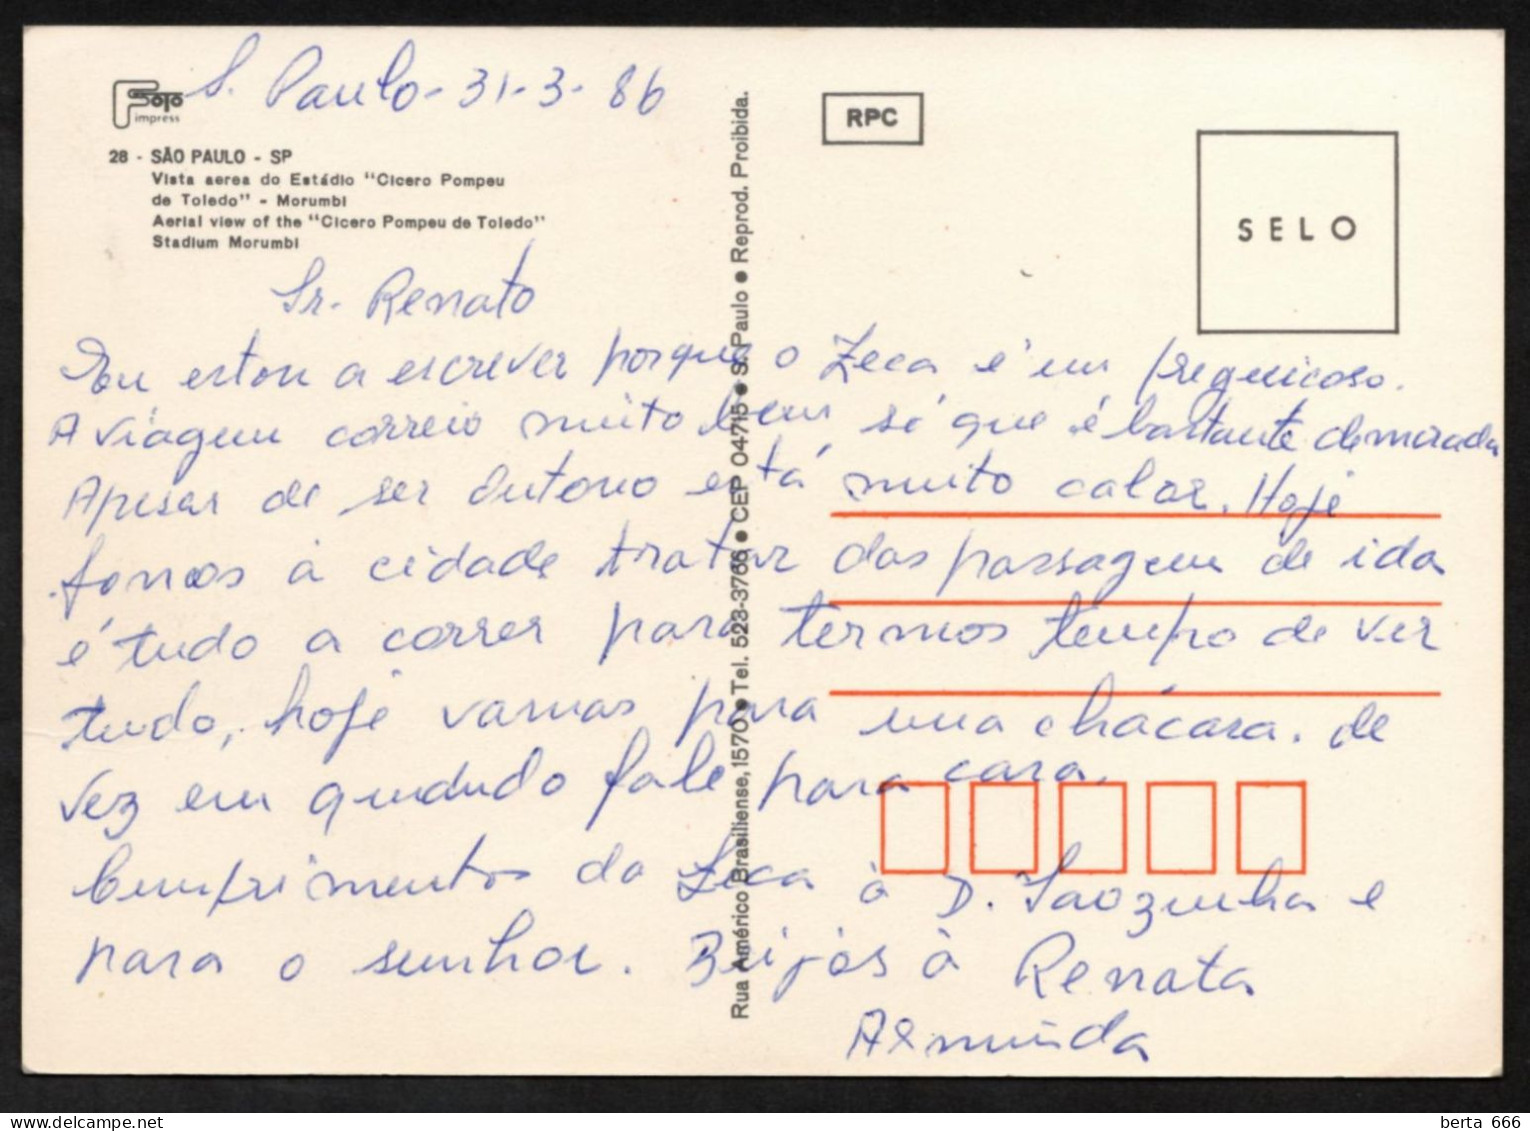 S. Paulo - 31-3-86
Foto
impress
28 - SÃO PAULO - SP
Vista aerea do Estádio "Cicero Pompeu
de Toledo" - Morumbi
Aerial view of the "Cicero Pompeu de Toledo"
Stadium Morumbi
RPC
SELO
Rua Américo Brasiliense, 1570 • Tel. 523-3766 • CEP 04715 • S. Paulo • Reprod. Proibida.
Sr. Renato
Eu estou a escrever porque o Zeca é um preguicoso.
A viagem correio muito bem só que é bastante demorada
Apesar de ser Outono está muito calor. Hoje
fomos à cidade tratar das passagem de ida
é tudo a correr para termos tempo de ver
tudo, hoje vamos para uma chácara. de
vez em qududo fale para cara.
Cumprimentos do Zeca à D. Saozinha e
para o senhor. Beijos à Renata
Arminda
berta 666